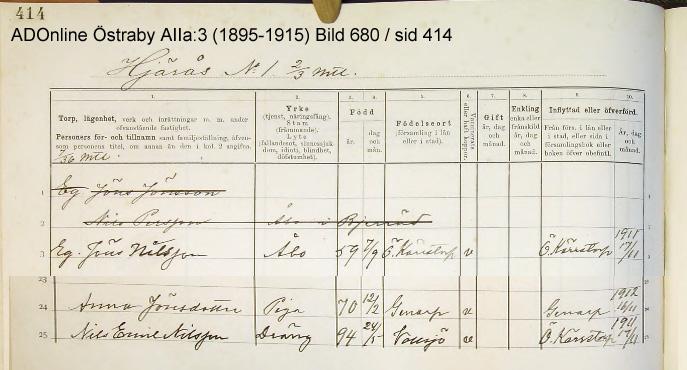 414
ADOnline Östraby AIIa:3 (1895-1915) Bild 680 / sid 414
Hjärås No 1. 2/3 mtl.
1. 2. 3. 4. 5. 6. 7. 8. 9. 10.
Torp, lägenhet, verk och inrättningar m. m. under ofvanstående fastighet.
Personers för- och tillnamn samt familjeställning, äfvensom personens titel, om annan än den i kol. 2 angifna.
Yrke (tjenst, näringsfång). Stam (främmande). Lyte (fallandesot, sinnessjukdom, idioti, blindhet, döfstumhet).
Född år. dag och mån.
Födelseort (församling i län eller i stad).
Vaccinerats eller haft koppor.
Gift år, dag och månad.
Enkling enka eller frånskild år, dag och månad.
Inflyttad eller öfverförd. Från förs. i län eller i stad, eller sida i församlingsbok eller boken öfver obefintl. År, dag och månad.
mtl.
Eg. Jöns Jönsson 1
2 Nils Persson Åbo i 2
3 Eg. Jöns Nilsson Åbo 59 7/9 Ö. Kärrstorp v Ö. Kärrstorp 1911 17/11 3
23
24 Anna Jönsdotter Piga 70 12/2 Genarp v Genarp 1912 16/11
25 Nils Emil Nilsson Dräng 94 24/5 Vollsjö v Ö. Kärrstorp 1911 17/11 25